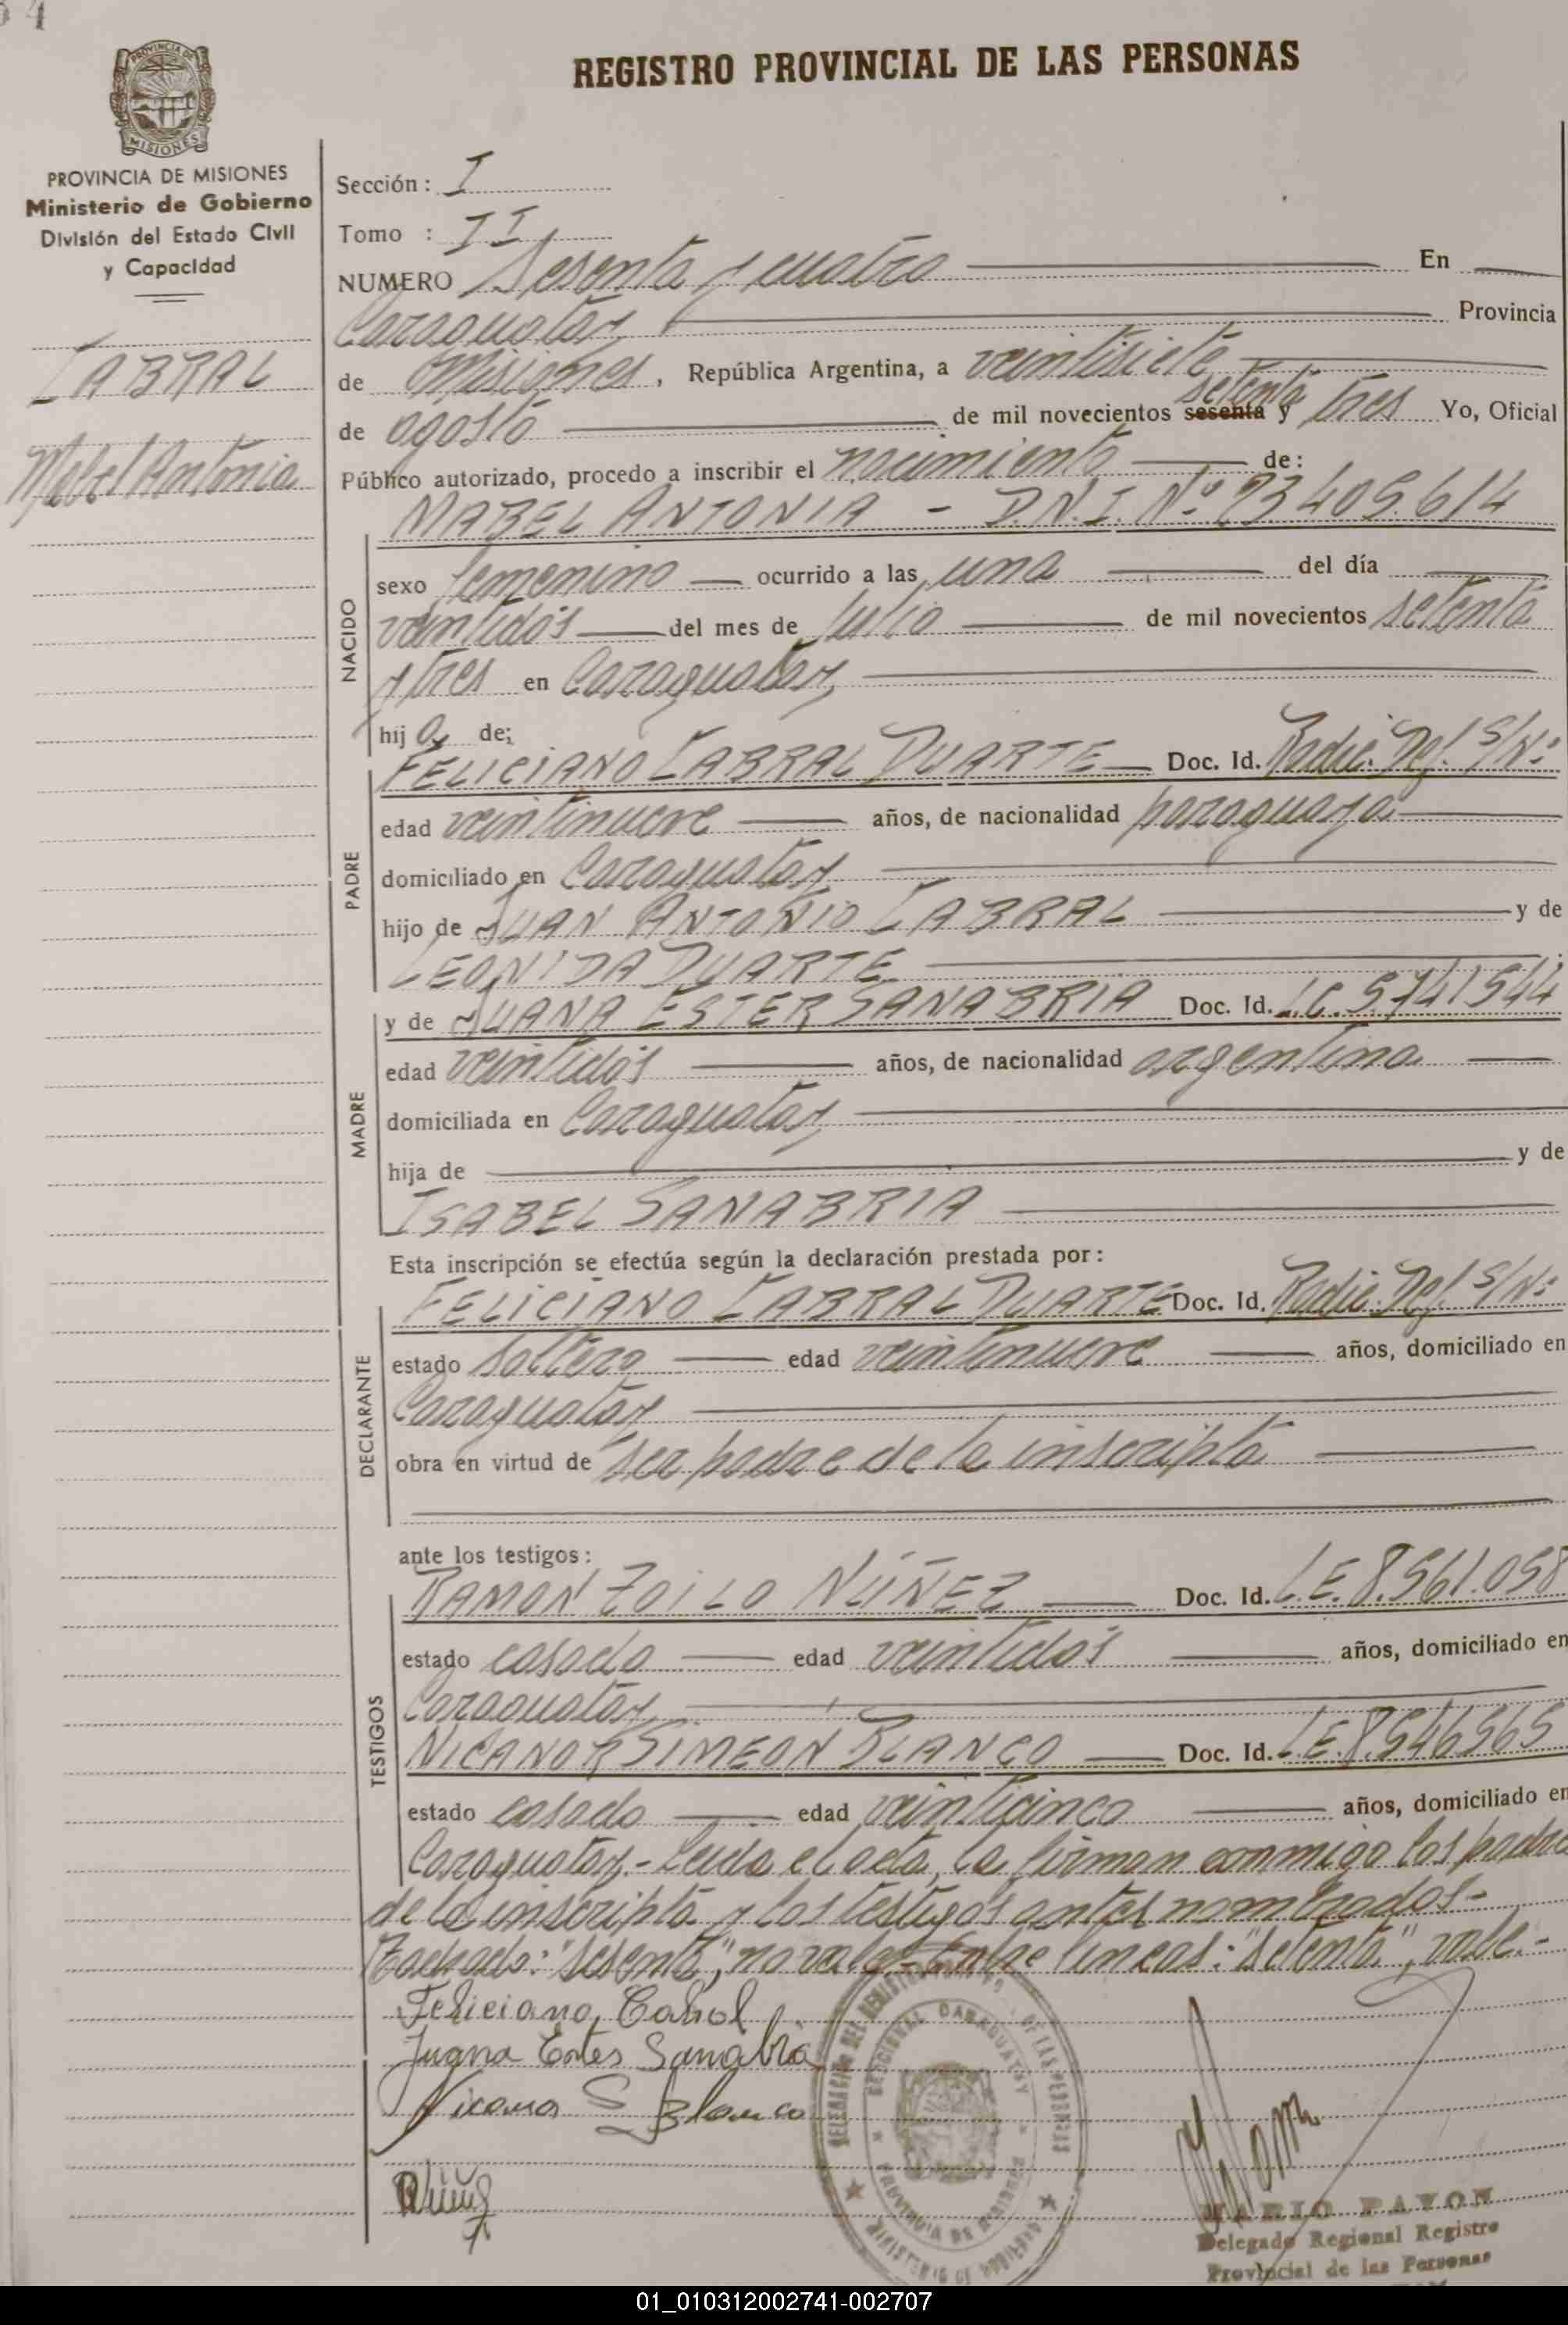 64
REGISTRO PROVINCIAL DE LAS PERSONAS
PROVINCIA DE MISIONES
MISIONES
PROVINCIA DE MISIONES
Ministerio de Gobierno
División del Estado Civil
y Capacidad
CABRAL
Mabel Antonia
Sección: I
Tomo : II
NUMERO Sesenta y cuatro En
Caraguatay Provincia
de Misiones, República Argentina, a veintisiete
setenta
de agosto de mil novecientos sesenta y tres Yo, Oficial
Público autorizado, procedo a inscribir el nacimiento de:
MABEL ANTONIA - D.N.I. Nº 23.409.614
NACIDO
sexo femenino ocurrido a las una del día
veintidós del mes de Julio de mil novecientos setenta
y tres en Caraguatay
hija de:
PADRE
FELICIANO CABRAL DUARTE Doc. Id. Radic. Def. S/Nº
edad veintinueve años, de nacionalidad paraguaya
domiciliado en Caraguatay
hijo de JUAN ANTONIO CABRAL y de
LEONIDA DUARTE
MADRE
y de JUANA ESTER SANABRIA Doc. Id. L.C. 5.741544
edad veintidós años, de nacionalidad argentina
domiciliada en Caraguatay
hija de y de
ISABEL SANABRIA
Esta inscripción se efectúa según la declaración prestada por:
DECLARANTE
FELICIANO CABRAL DUARTE Doc. Id. Radic. Def. S/Nº
estado soltero edad veintinueve años, domiciliado en
Caraguatay
obra en virtud de ser padre de la inscripta
ante los testigos:
TESTIGOS
RAMON ZOILO NÚÑEZ Doc. Id. L.E. 8.561.058
estado casado edad veintidós años, domiciliado en
Caraguatay
NICANOR SIMEON BLANCO Doc. Id. L.E. 8.546565
estado casado edad veinticinco años, domiciliado en
Caraguatay.- Leída el acta, la firman conmigo los padres
de la inscripta y los testigos antes nombrados-
Tachado: "sesenta", no vale- Entre líneas: "setenta", vale.-
Feliciano Cabral
Juana Ester Sanabria
Nicanor S Blanco
DELEGACION DEL REGISTRO DE LAS PERSONAS
SECCIONAL CARAGUATAY
PROVINCIA DE MISIONES
MINISTERIO DE GOBIERNO
MARIO PAVON
Delegado Regional Registro
Provincial de las Personas
01_010312002741-002707